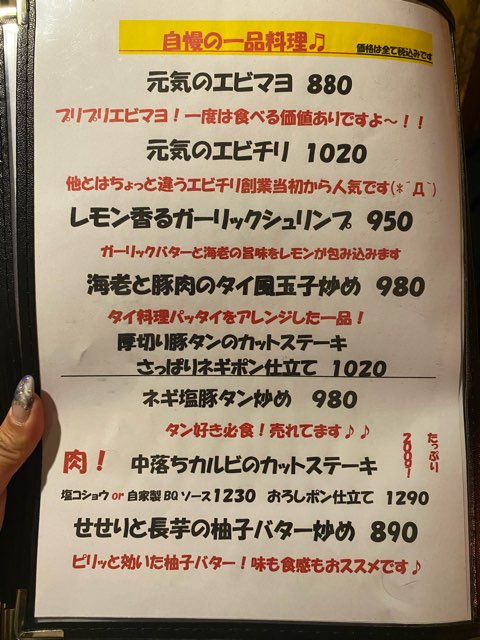 自慢の一品料理♫ 価格は全て税込みです
元気のエビマヨ 880
プリプリエビマヨ！一度は食べる価値ありですよ～！！
元気のエビチリ 1020
他とはちょっと違うエビチリ創業当初から人気です(*´Д`)
レモン香るガーリックシュリンプ 950
ガーリックバターと海老の旨味をレモンが包み込みます
海老と豚肉のタイ風玉子炒め 980
タイ料理パッタイをアレンジした一品！
厚切り豚タンのカットステーキ
さっぱりネギポン仕立て 1020
ネギ塩豚タン炒め 980
タン好き必食！売れてます♪♪
肉！ 中落ちカルビのカットステーキ
たっぷり
200g！
塩コショウ or 自家製BQソース1230 おろしポン仕立て 1290
せせりと長芋の柚子バター炒め 890
ピリッと効いた柚子バター！味も食感もおススメです♪